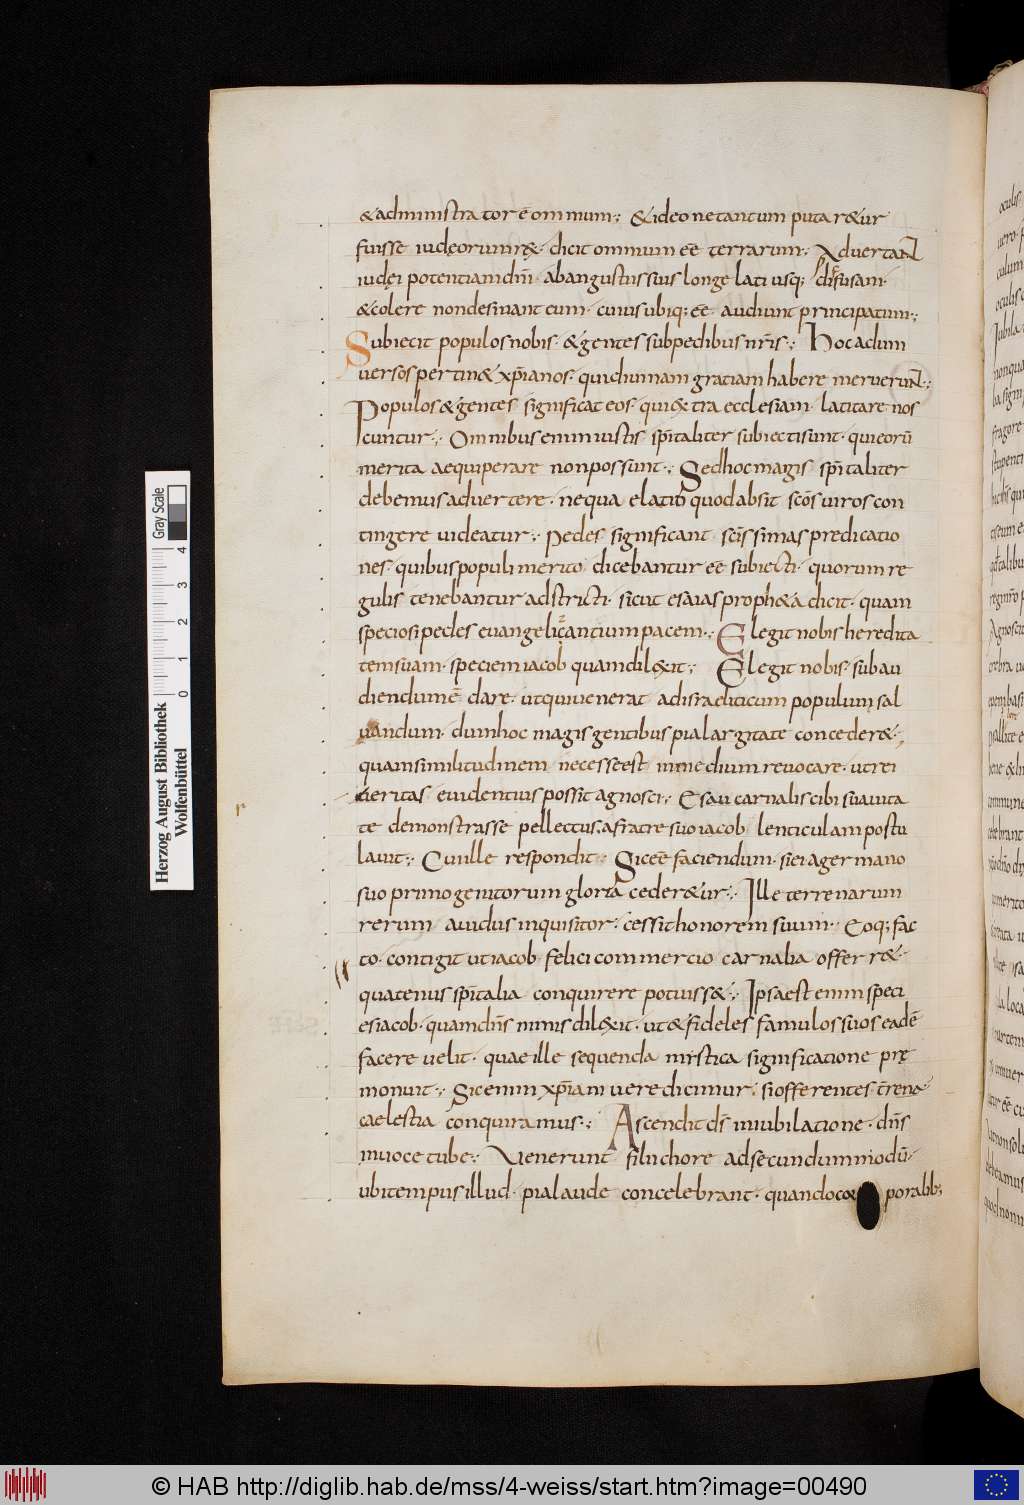 &administratorē omnium; &ideo ne tantum putar&ur
fuisse iudęorum rex· dicit omnium eē terrarum; Aduertant
iudęi potentiam dn̄i· ab angustus suis longe lati usq; diffusam·
&colere non desinant eum· cuius ubiq; eē audiunt principatum;
Subiecit populos nobis· &gentes sub pedibus nr̄is; Hoc aduni
uersos pertin& xp̄ianos· qui diuinam gratiam habere meruerunt;
Populos &gentes significat eos· qui extra ecclesiam· latitare nos
cuntur; Omnibus enim iustis sp̄italiter subiecti sunt· qui eorū
merita aequiperare non possunt; Sed hoc magis sp̄italiter
debemus aduertere· nequa elatio quod absit scōs uiros con
tingere uideatur; Pedes significant sc̄issimas predicatio
nes· quibus populi merito dicebantur eē subiecti· quorum re
gulis tenebantur adstricti· sicut esaias proph&a dicit· quam
speciosi pedes euangelizantium pacem; Elegit nobis heredita
tem suam· speciem iacob quam dilexit; Elegit nobis· subau
diendum ē dare· ut qui uenerat ad isrl̄iticum populum sal
uandum· dum hoc magis gentibus pia largitate conceder&·
quam similitudinem necesse est in medium reuocare· ut rei
ueritas euidentius possit agnosci; Esau carnalis cibi suauita
te demonstrasse pellectus; a fratre suo iacob lenticulam postu
lauit; Cui ille respondit; Sic eē faciendum· si ei a germano
suo primogenitorum gloria ceder&ur; Ille terrenarum
rerum auidus inquisitor· cessit honorem suum· Eoq; fac
to· contigit ut iacob felici commercio carnalia offerr&·
quatenus sp̄italia conquirere potuiss&; Ipsa est enim speci
es iacob· quam dn̄s nimis dilexit· ut &fideles famulos suos eadē
facere uelit· quae ille sequenda mistica significatione prę
monuit; Sic enim xp̄iani uere dicimur· si offerentes t̄rena
caelestia conquiramus; Ascendit ds̄ in iubilatione· dn̄s
in uoce tubę; Uenerunt filii chore ad secundum modū·
ubi tempus illud· pia laude concelebrant· quando cor poralib;
Herzog August Bibliothek
Wolfenbüttel
0 1 2 3 4
Gray Scale
© HAB http://diglib.hab.de/mss/4-weiss/start.htm?image=00490